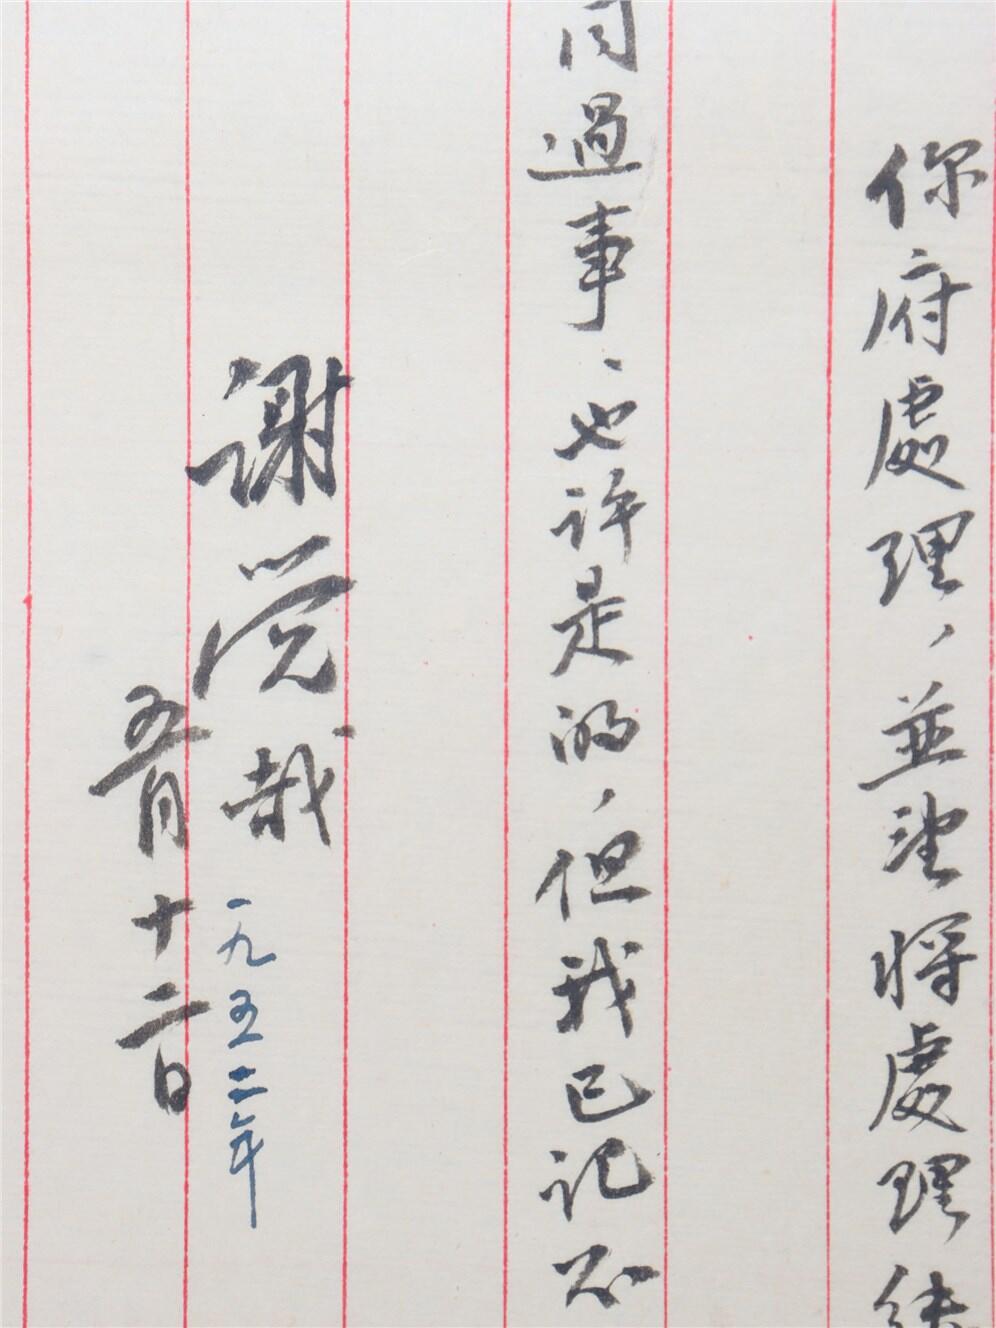 你府處理,並望將處理結
同過事、也许是的,但我已记不
谢觉哉
一九五二年
五月十二日